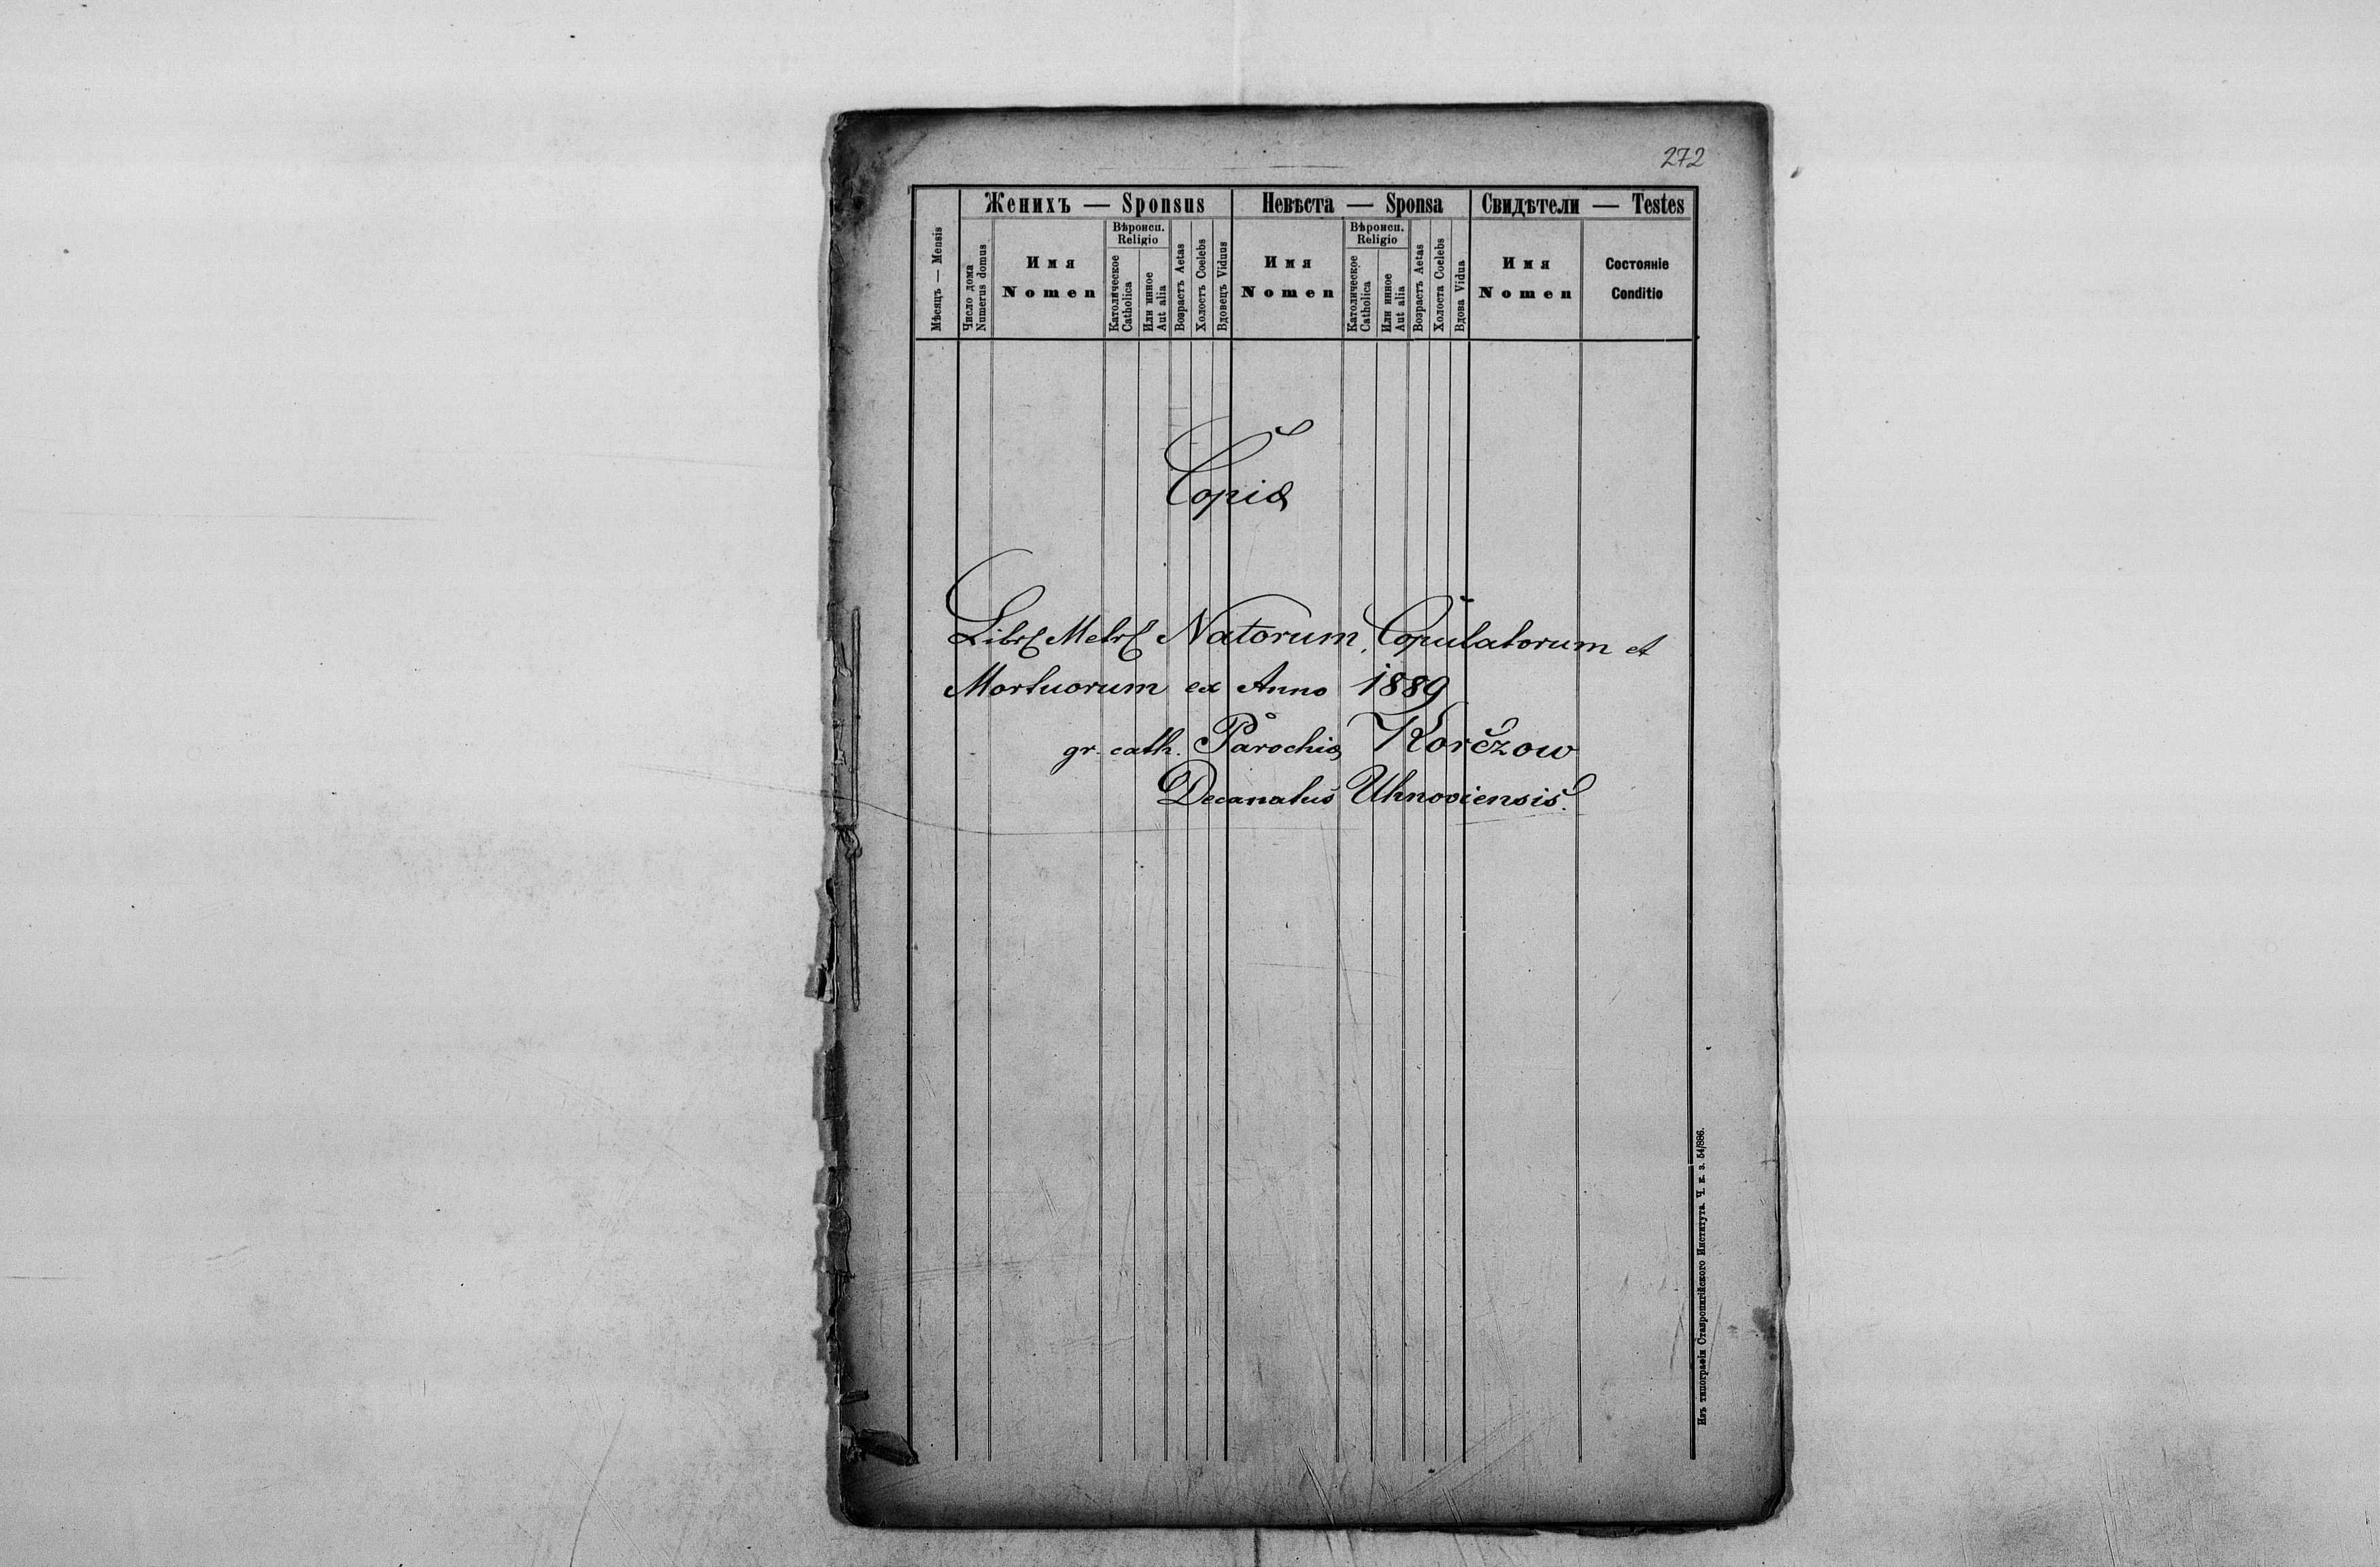 272
Женихъ — Sponsus
Невѣста — Sponsa
Свидѣтели — Testes
Мѣсяцъ — Mensis
Число дома
Numerus domus
Имя
Nomen
Вѣроисп.
Religio
Католическое
Catholica
Или инное
Aut alia
Возрастъ Aetas
Холостъ Coelebs
Вдовецъ Viduus
Имя
Nomen
Вѣроисп.
Religio
Католическое
Catholica
Или инное
Aut alia
Возрастъ Aetas
Холоста Coelebs
Вдова Vidua
Имя
Nomen
Состояніе
Conditio
Copia
Libri Metri Natorum, Copulatorum et
Mortuorum ex Anno 1889
gr. cath. Parochia Korczow
Decanatus Uhnoviensis.
Изъ типографіи Ставропигійского Института. Ч. к. з. 54/886.